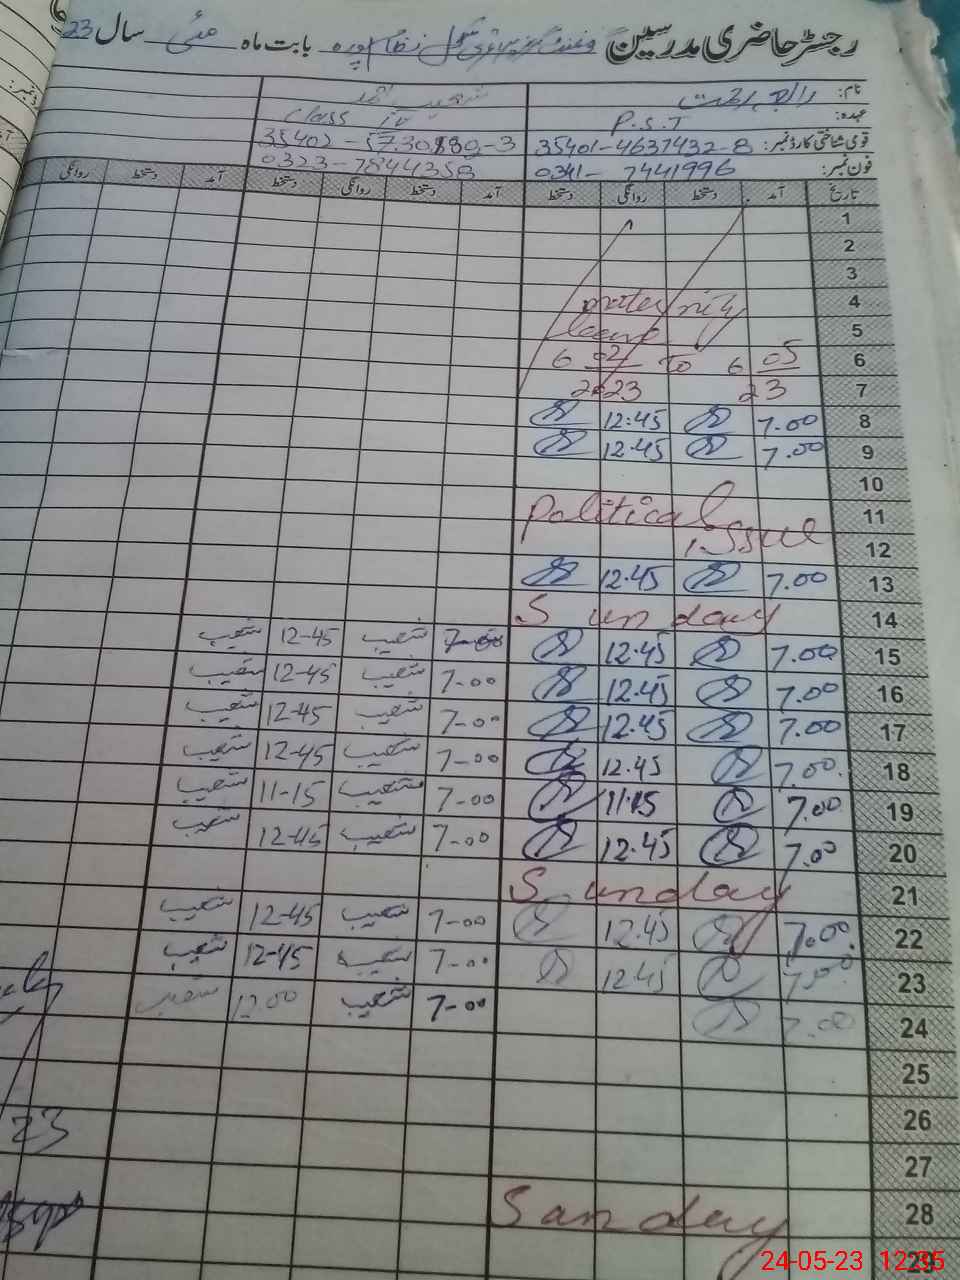 رجسٹر حاضری مدرسین گورنمنٹ گرلز پرائمری سکول نظام پورہ بابت ماہ مئی سال 23
نام: رابعہ شعیب احمد
عہدہ: P.S.T Class IV
قومی شناختی کارڈ نمبر: 35401-4637432-8 35402-5730890-3
فون نمبر: 0341-7441996 0323-7844358
تاریخ آمد دستخط روانگی دستخط آمد دستخط روانگی دستخط آمد دستخط روانگی
1
2
3
4 maternity
5 leave
6 6 02 to 6 05
7 2023 23
8 7.00 12:45
9 7.00 12.45
10
11 Political
12 issue
13 7.00 12.45
14 Sunday
15 7.00 12.45 7-00 شعیب 12-45 شعیب
16 7.00 12.45 7-00 شعیب 12-45 شعیب
17 7.00 12.45 7-00 شعیب 12-45 شعیب
18 7.00 12.45 7-00 شعیب 12-45 شعیب
19 7.00 11.15 7-00 شعیب 11-15 شعیب
20 7.00 12.45 7-00 شعیب 12-45 شعیب
21 Sunday
22 7.00 12.45 7-00 شعیب 12-45 شعیب
23 7.00 12.45 7-00 شعیب 12-45 شعیب
24 7.00 7-00 شعیب 12.00 شعیب
25
26
23
27
28 Sanday
29
24-05-23 12:35